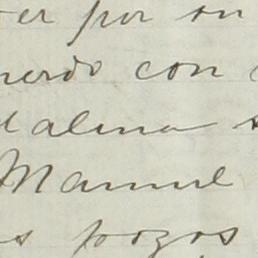 er por su
uerdo con
d alma
Manuel
s pozos